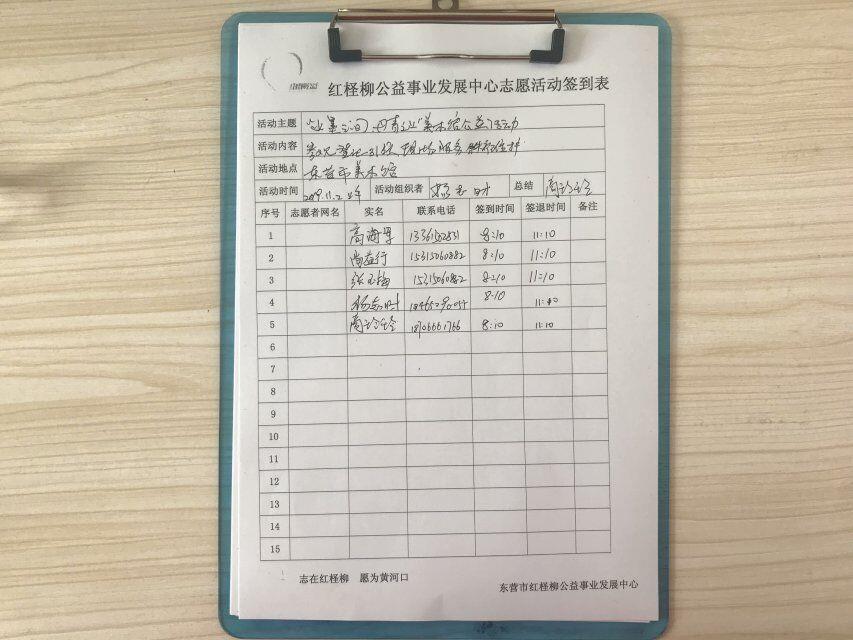 红柽柳公益事业发展中心志愿活动签到表
活动主题 美术馆公益活动
活动内容 现场服务
活动地点 东营市美术馆
活动时间 2019.11.2 上午 活动组织者 总结
序号 志愿者网名 实名 联系电话 签到时间 签退时间 备注
1 高海军 8:10 11:10
2 尚益行 15315060882 8:10 11:10
3 张玉梅 15315060882 8:10 11:10
4 8:10 11:10
5 18706661766 8:10 11:10
6
7
8
9
10
11
12
13
14
15
志在红柽柳 愿为黄河口
东营市红柽柳公益事业发展中心